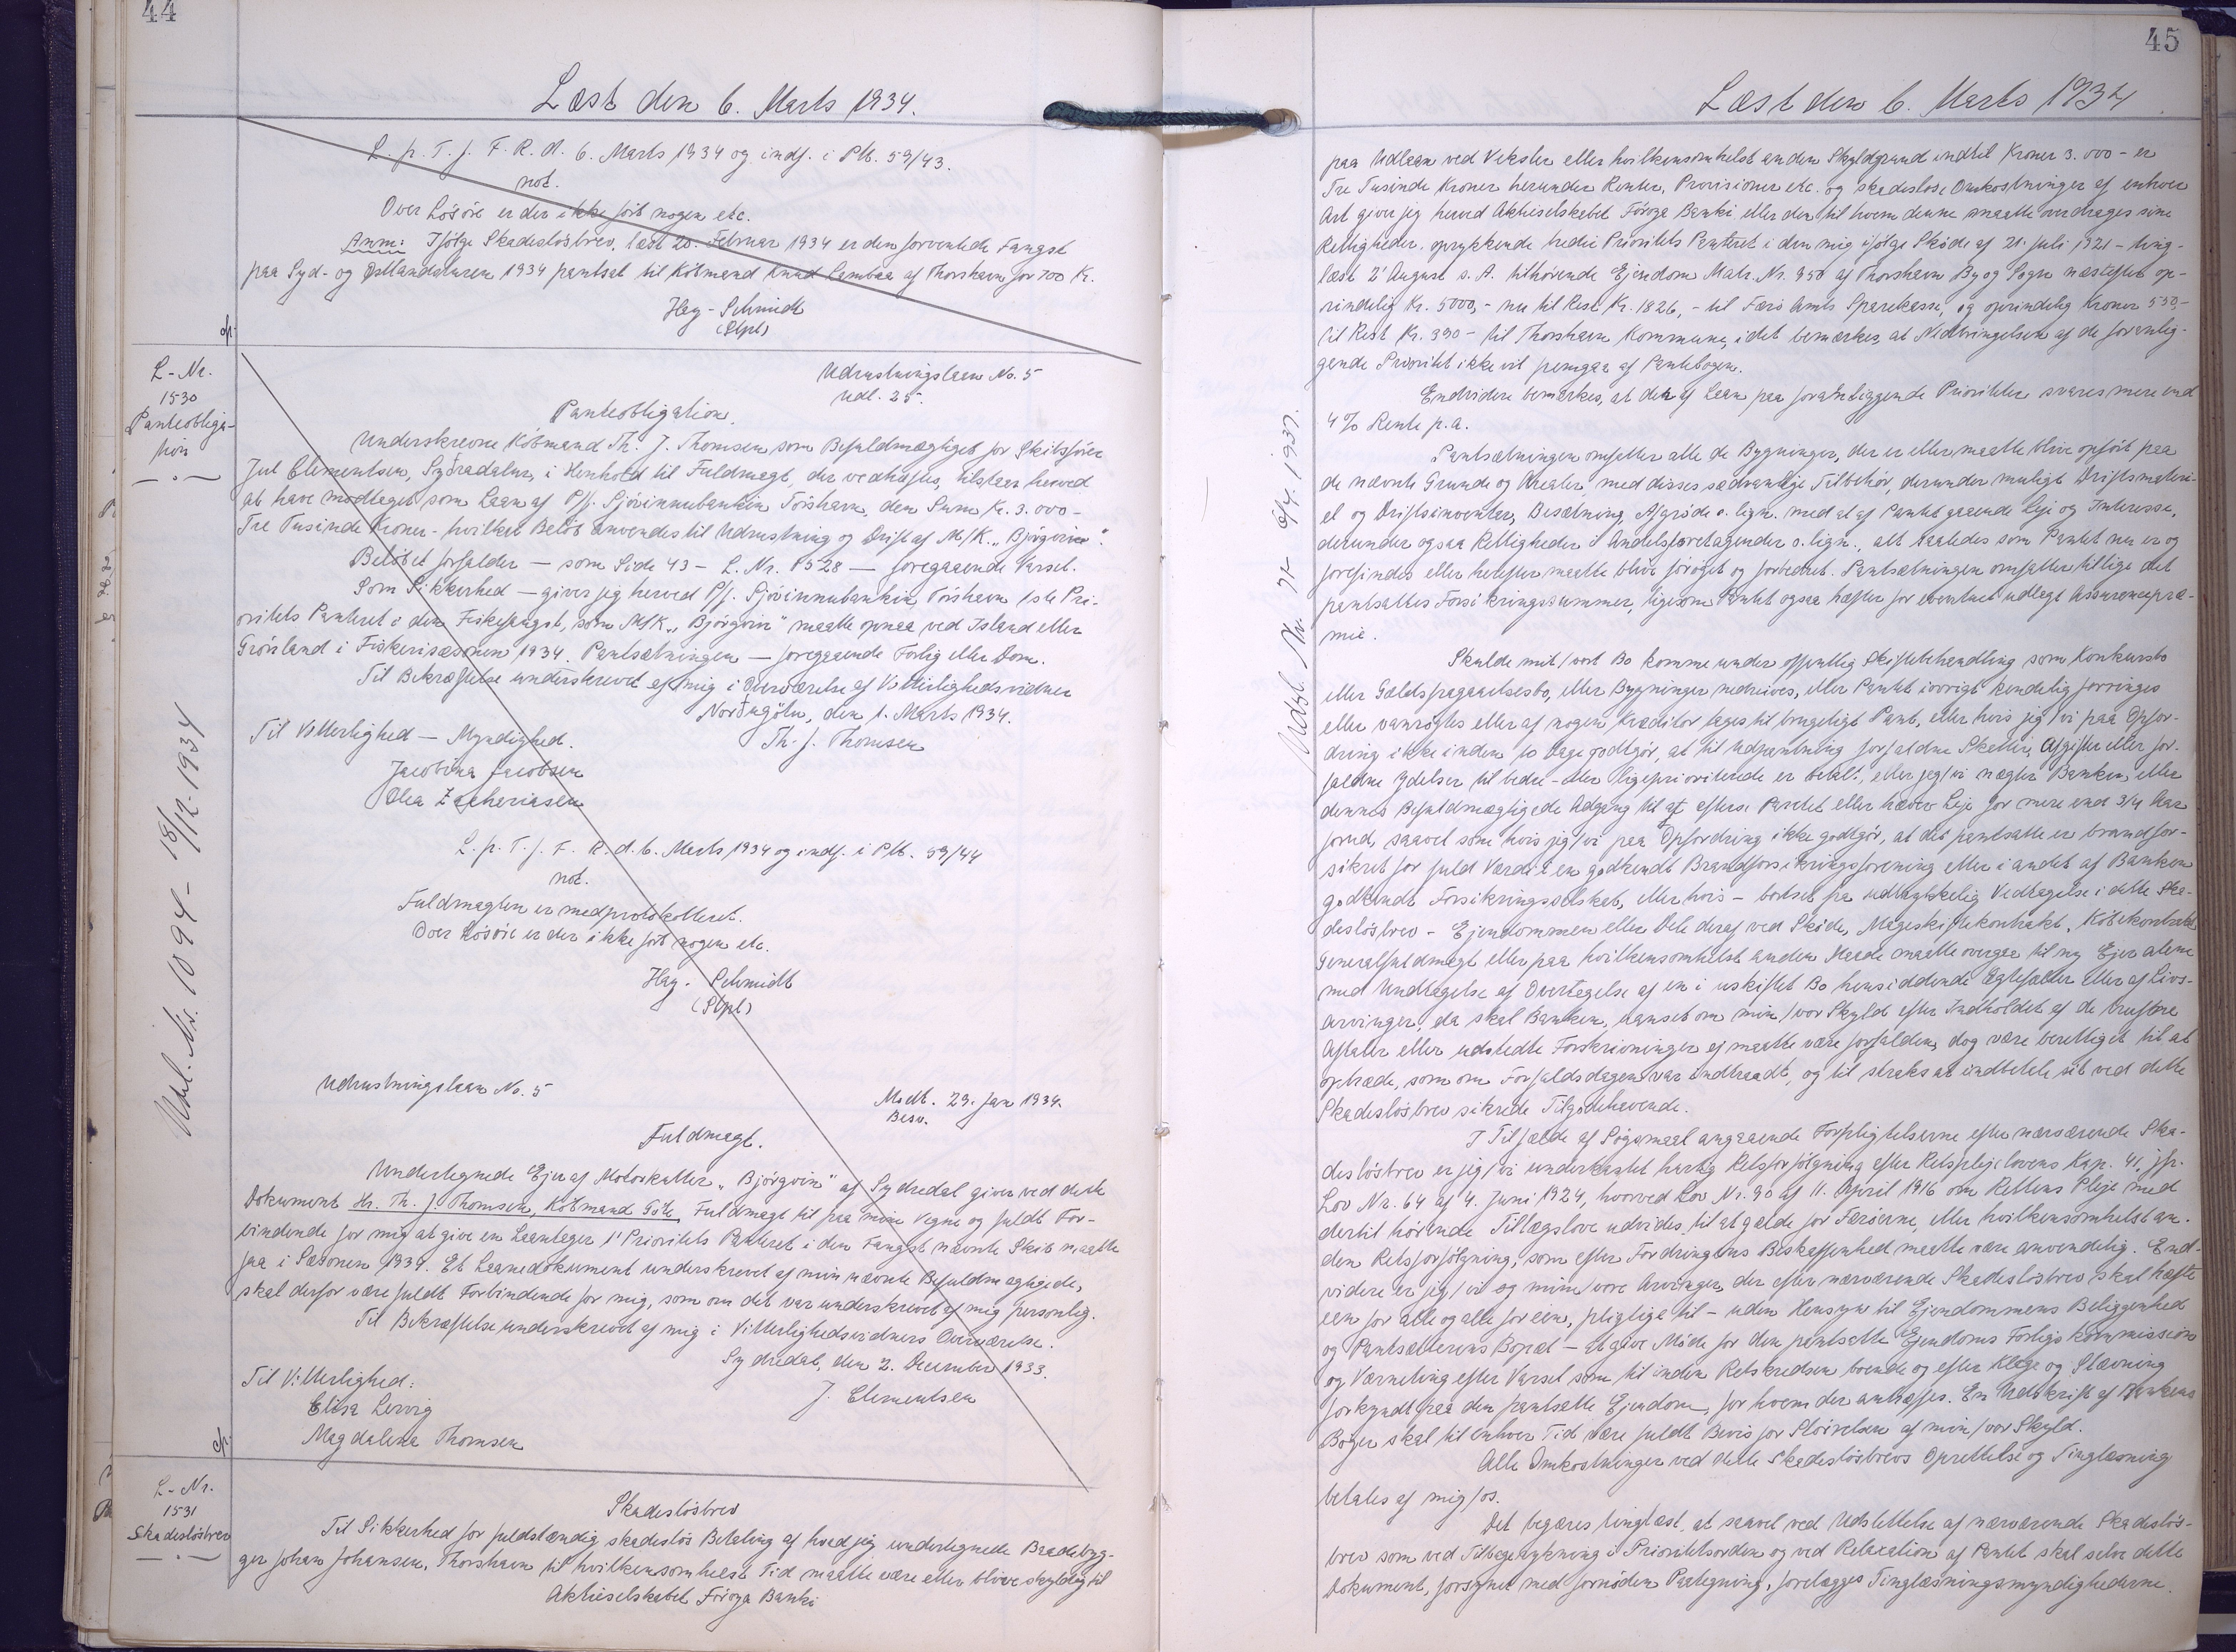 44
Læst den 6. Marts 1934.
L. p. T. f. F. R. d. 6. Marts 1934 og indf. i Ptb. 59/43.
not.
Over Lösöre er der ikke fört nogen etc.
Anm: Ifölge Skadeslösbrev, læst 20. Februar 1934 er den forventede Fangst
paa Syd- og Östlandsturen 1934 pantsat til Köbmand Knud Lambaa af Thorshavn for 700 Kr.
Hay-Schmidt
(Stpl)
cfr.
L-Nr.
1530
Panteobliga-
tion
Udrustningslaan No. 5
Udl. 25.
Panteobligation.
Underskrevne Köbmand Th. J. Thomsen som Befuldmægtiget for Skibsförer
Jul Clementsen, Syðradalur, i Henhold til Fuldmagt, der vedhæftes, tilstaar herved
at have modtaget som Laan af P/f. Sjóvinnubankin Tórshavn, den Sum Kr. 3.000-
Tre Tusinde Kroner- hvilket Belöb anvendes til Udrustning og Drift af M/K. "Björgvin".
Belöbet forfalder — som Side 43 - L. Nr. 1528 — foregaaende Varsel.
Som Sikkerhed — giver jeg herved P/f. Sjóvinnubankin, Tórshavn 1ste Pri-
oritets Panteret i den Fiskefangst, som M/K. "Björgvin" maatte opnaa ved Island eller
Grönland i Fiskerisæsonen 1934. Pantsætningen — foregaaende Forlig eller Dom.
Til Bekræftelse underskrevet af mig i Overværelse af Vitterlighedsvidner
Norðragötu, den 1. Marts 1934.
Til Vitterlighed — Myndighed.
Th. J. Thomsen
Jacobina Jacobsen
Olea Zachariasen
L. p. T. f. F. R. d. 6. Marts 1934 og indf. i Ptb. 59/44
not.
Fuldmagten er medprotokolleret.
Over Lösöre er der ikke fört nogen etc.
Hay-Schmidt
(Stpl)
Udsl. Nr. 1094 - 18/12-1934
Udrustningslaan No. 5
Modt. 29. Jan 1934.
Besv.
Fuldmagt.
Undertegnede Ejer af Motorskutter "Björgvin" af Sydredal giver ved dette
Dokument Hr. Th. J. Thomsen, Köbmand Göte, Fuldmagt til paa mine Vegne og fuldt For-
bindende for mig at give en Laantager 1' Prioritets Panteret i den Fangst nævnte Skib maatte
faa i Sæsonen 1934. Et Laanedokument underskrevet af min nævnte Befuldmægtigede,
skal derfor være fuldt Forbindende for mig, som om det var underskrevet af mig personlig.
Til Bekræftelse underskrevet af mig i Vitterlighedsvidners Overværelse.
Sydredal, den 2. December 1933.
Til Vitterlighed:
J. Clementsen
Elisa Lervig
Magdalena Thomsen
cfr.
L-Nr.
1531
Skadeslösbrev
Skadeslösbrev
Til Sikkerhed for fuldstændig skadeslös Betaling af hvad jeg undertegnede Baadebyg-
ger Johan Johansen, Thorshavn til hvilkensomhelst Tid maatte være eller blive skyldig til
Aktieselskabet Föroya Banki
45
Læst den 6. Marts 1934
paa Udlaan ved Veksler eller hvilkensomhelst anden Skyldgrund indtil Kroner 3.000 - er
Tre Tusinde Kroner herunder Renter, Provisioner etc. og skadeslöse Omkostninger af enhver
Art giver jeg herved Aktieselskabet Föroya Banki eller den til hvem denne maatte overdrages sine
Rettigheder, oprykkende tredie Prioritets Panteret i den mig ifölge Sköde af 21. Juli 1921 - ting-
læst 2' August s. A. tilhörende Ejendom Matr. Nr. 950 af Thorshavn By og Sogn næstefter op-
rindelig Kr. 5000,- nu til Rest Kr. 1826,- til Færö Amts Sparekasse, og oprindelig Kroner 550,-
til Rest Kr. 390 - til Thorshavn Kommune, idet bemærkes, at Nedbringelsen af de foranlig-
gende Prioritet ikke vil fremgaa af Pantebogen.
Endvidere bemærkes, at der af Laan paa foranliggende Prioriteter svares mere end
4 % Rente p. a.
Pantsætningen omfatter alle de Bygninger, der er eller maatte blive opfört paa
de nævnte Grunde og Arealer, med disses sædvanlige Tilbehör, derunder muligt Driftsmateri-
el og Driftsinventar, Besætning, Afgröde o. lign. med af af Pantet gaaende Leje og Interesse,
derunder ogsaa Rettigheder i Andelsforetagender o. lign., alt saaledes som Pantet nu er og
forefindes eller herefter maatte blive foröget og forbedret. Pantsætningen omfatter tillige det
pantsattes Forsikringssummer, ligesom Pantet ogsaa hæfter for eventuel udlagt Assurancepræ-
mie.
Skulde mit/vort Bo komme under offentlig Skiftebehandling som Konkursbo
eller Gældsfragaaelsesbo, eller Bygninger nedrives, eller Pantet iövrigt kendelig forringes
eller vanrögtes eller af nogen Kreditor tages til brugeligt Pant, eller hvis jeg/vi paa Opfor-
dring ikke inden 10 Dage godtgör, at til Udpantning forfaldne Skatter, Afgifter eller for-
faldne Ydelser til bedre- eller ligeprioriterede er betalt, eller jeg/vi nægter Banken eller
dennes Befuldmægtigede Adgang til at efterse Pantet eller hæver Leje for mere end 3/4 Aar
forud, saavel som hvis jeg/vi paa Opfordring ikke godtgör, at det pantsatte er brandfor-
sikret for fuld Værdi i en godkendt Brandforsikringsforening eller i andet af Banken
godkendt Forsikringsselskab, eller hvis - bortset fra udtrykkelig Vedtagelse i dette Ska-
deslösbrev - Ejendommen eller Dele deraf ved Sköde, Mageskiftekontrakt, Köbekontrakt,
Generalfuldmagt eller paa hvilkensomhelst anden Maade maatte overgaa til ny Ejer alene
med Undtagelse af Overtagelse af en i uskiftet Bo hensiddende Ægtefælle eller af Livs-
arvinger, da skal Banken, uanset om min/vor Skyld efter Indholdet af de trufne
Aftaler eller udstedte Forskrivninger ej maatte være forfalden, dog være berettiget til at
optræde, som om Forfaldsdagen var indtraadt, og til straks at inddrive sit ved dette
Skadeslösbrev sikrede Tilgodehavende.
I Tilfælde af Sögsmaal angaaende Forpligtelserne efter nærværende Ska-
deslösbrev er jeg/vi underkastet hurtig Retsforfölgning efter Retsplejelovens Kap. 41, jfr.
Lov Nr. 64 af 4. Juni 1924, hvorved Lov Nr. 90 af 11. April 1916 om Rettens Pleje med
dertil hörende Tillægslove udvides til at gælde for Færöerne, eller hvilkensomhelst an-
den Retsforfölgning, som efter Fordringens Beskaffenhed maatte være anvendelig. End-
videre er jeg/vi og mine/vore Arvinger, der efter nærværende Skadeslösbrev skal hæfte
een for alle og alle for een, pligtige til - uden Hensyn til Ejendommens Beliggenhed
og Pantsætterens Bopæl - at give Möde for den pantsatte Ejendoms Forligskommission
og Værneting efter Varsel som til inden Retskredsen boende og efter Klage og Stævning
forkyndt paa den pantsatte Ejendom, for hvem der antræffes. En Udskrift af Bankens
Böger skal til enhver Tid være fuldt Bevis for Störrelsen af min/vor Skyld.
Alle Omkostninger ved dette Skadeslösbrevs Oprettelse og Tinglæsning
betales af mig/os.
Det begæres tinglæst, at saavel ved Udslettelse af nærværende Skadeslös-
brev som ved Tilbagerykning i Prioritetsorden og ved Relaxation af Pantet skal selve dette
Dokument, forsynet med fornöden Paategning, forelægges Tinglæsningsmyndighederne.